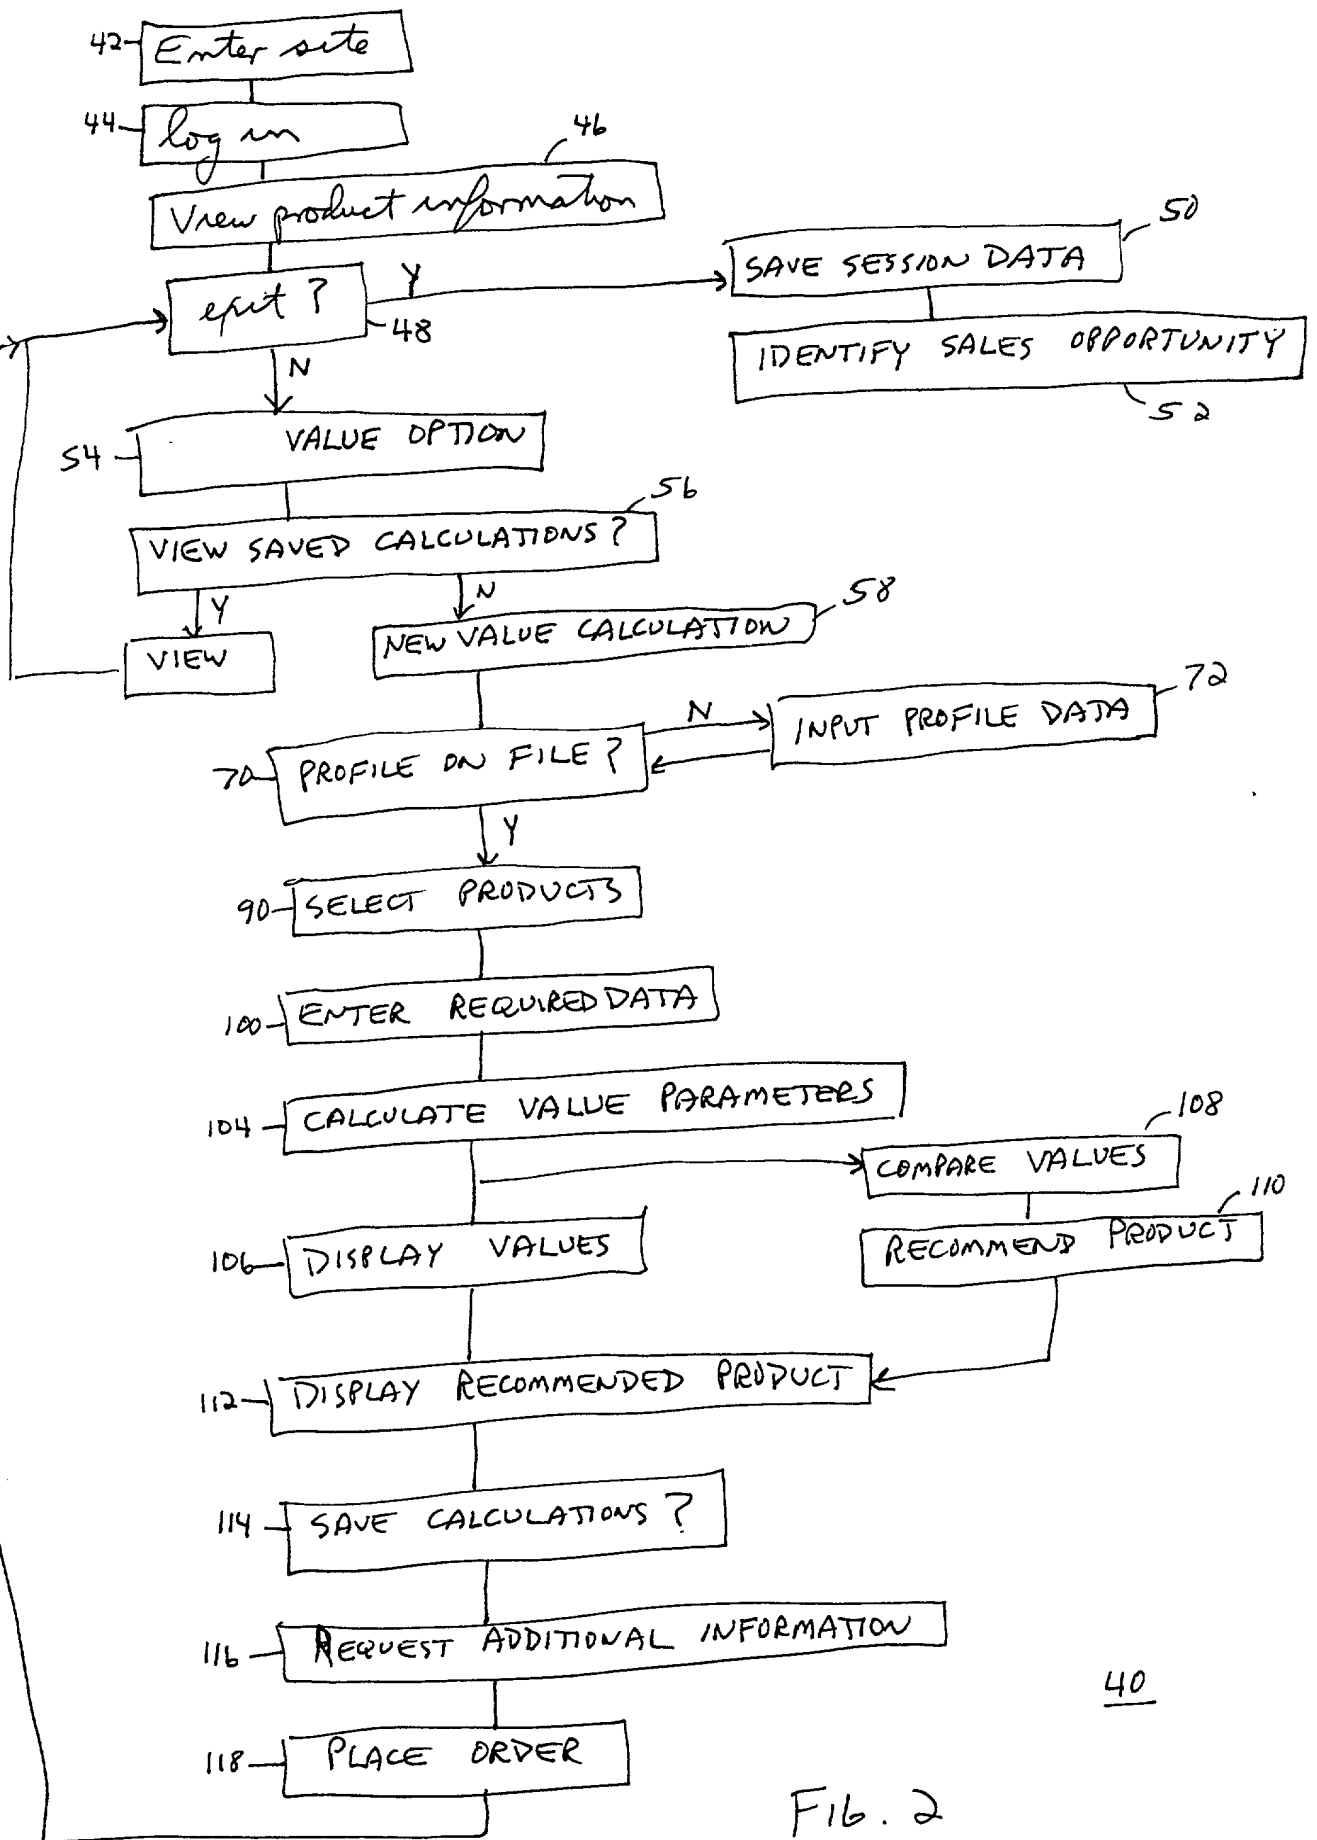 42 Enter site
44 log in
46
View product information
50
SAVE SESSION DATA
exit ? Y
48
IDENTIFY SALES OPPORTUNITY
52
N
54 VALUE OPTION
56
VIEW SAVED CALCULATIONS ?
Y N
58
NEW VALUE CALCULATION
VIEW
72
N INPUT PROFILE DATA
70 PROFILE ON FILE ?
Y
90 SELECT PRODUCTS
100 ENTER REQUIRED DATA
104 CALCULATE VALUE PARAMETERS
108
COMPARE VALUES
110
RECOMMEND PRODUCT
106 DISPLAY VALUES
112 DISPLAY RECOMMENDED PRODUCT
114 SAVE CALCULATIONS ?
116 REQUEST ADDITIONAL INFORMATION
40
118 PLACE ORDER
FIG. 2